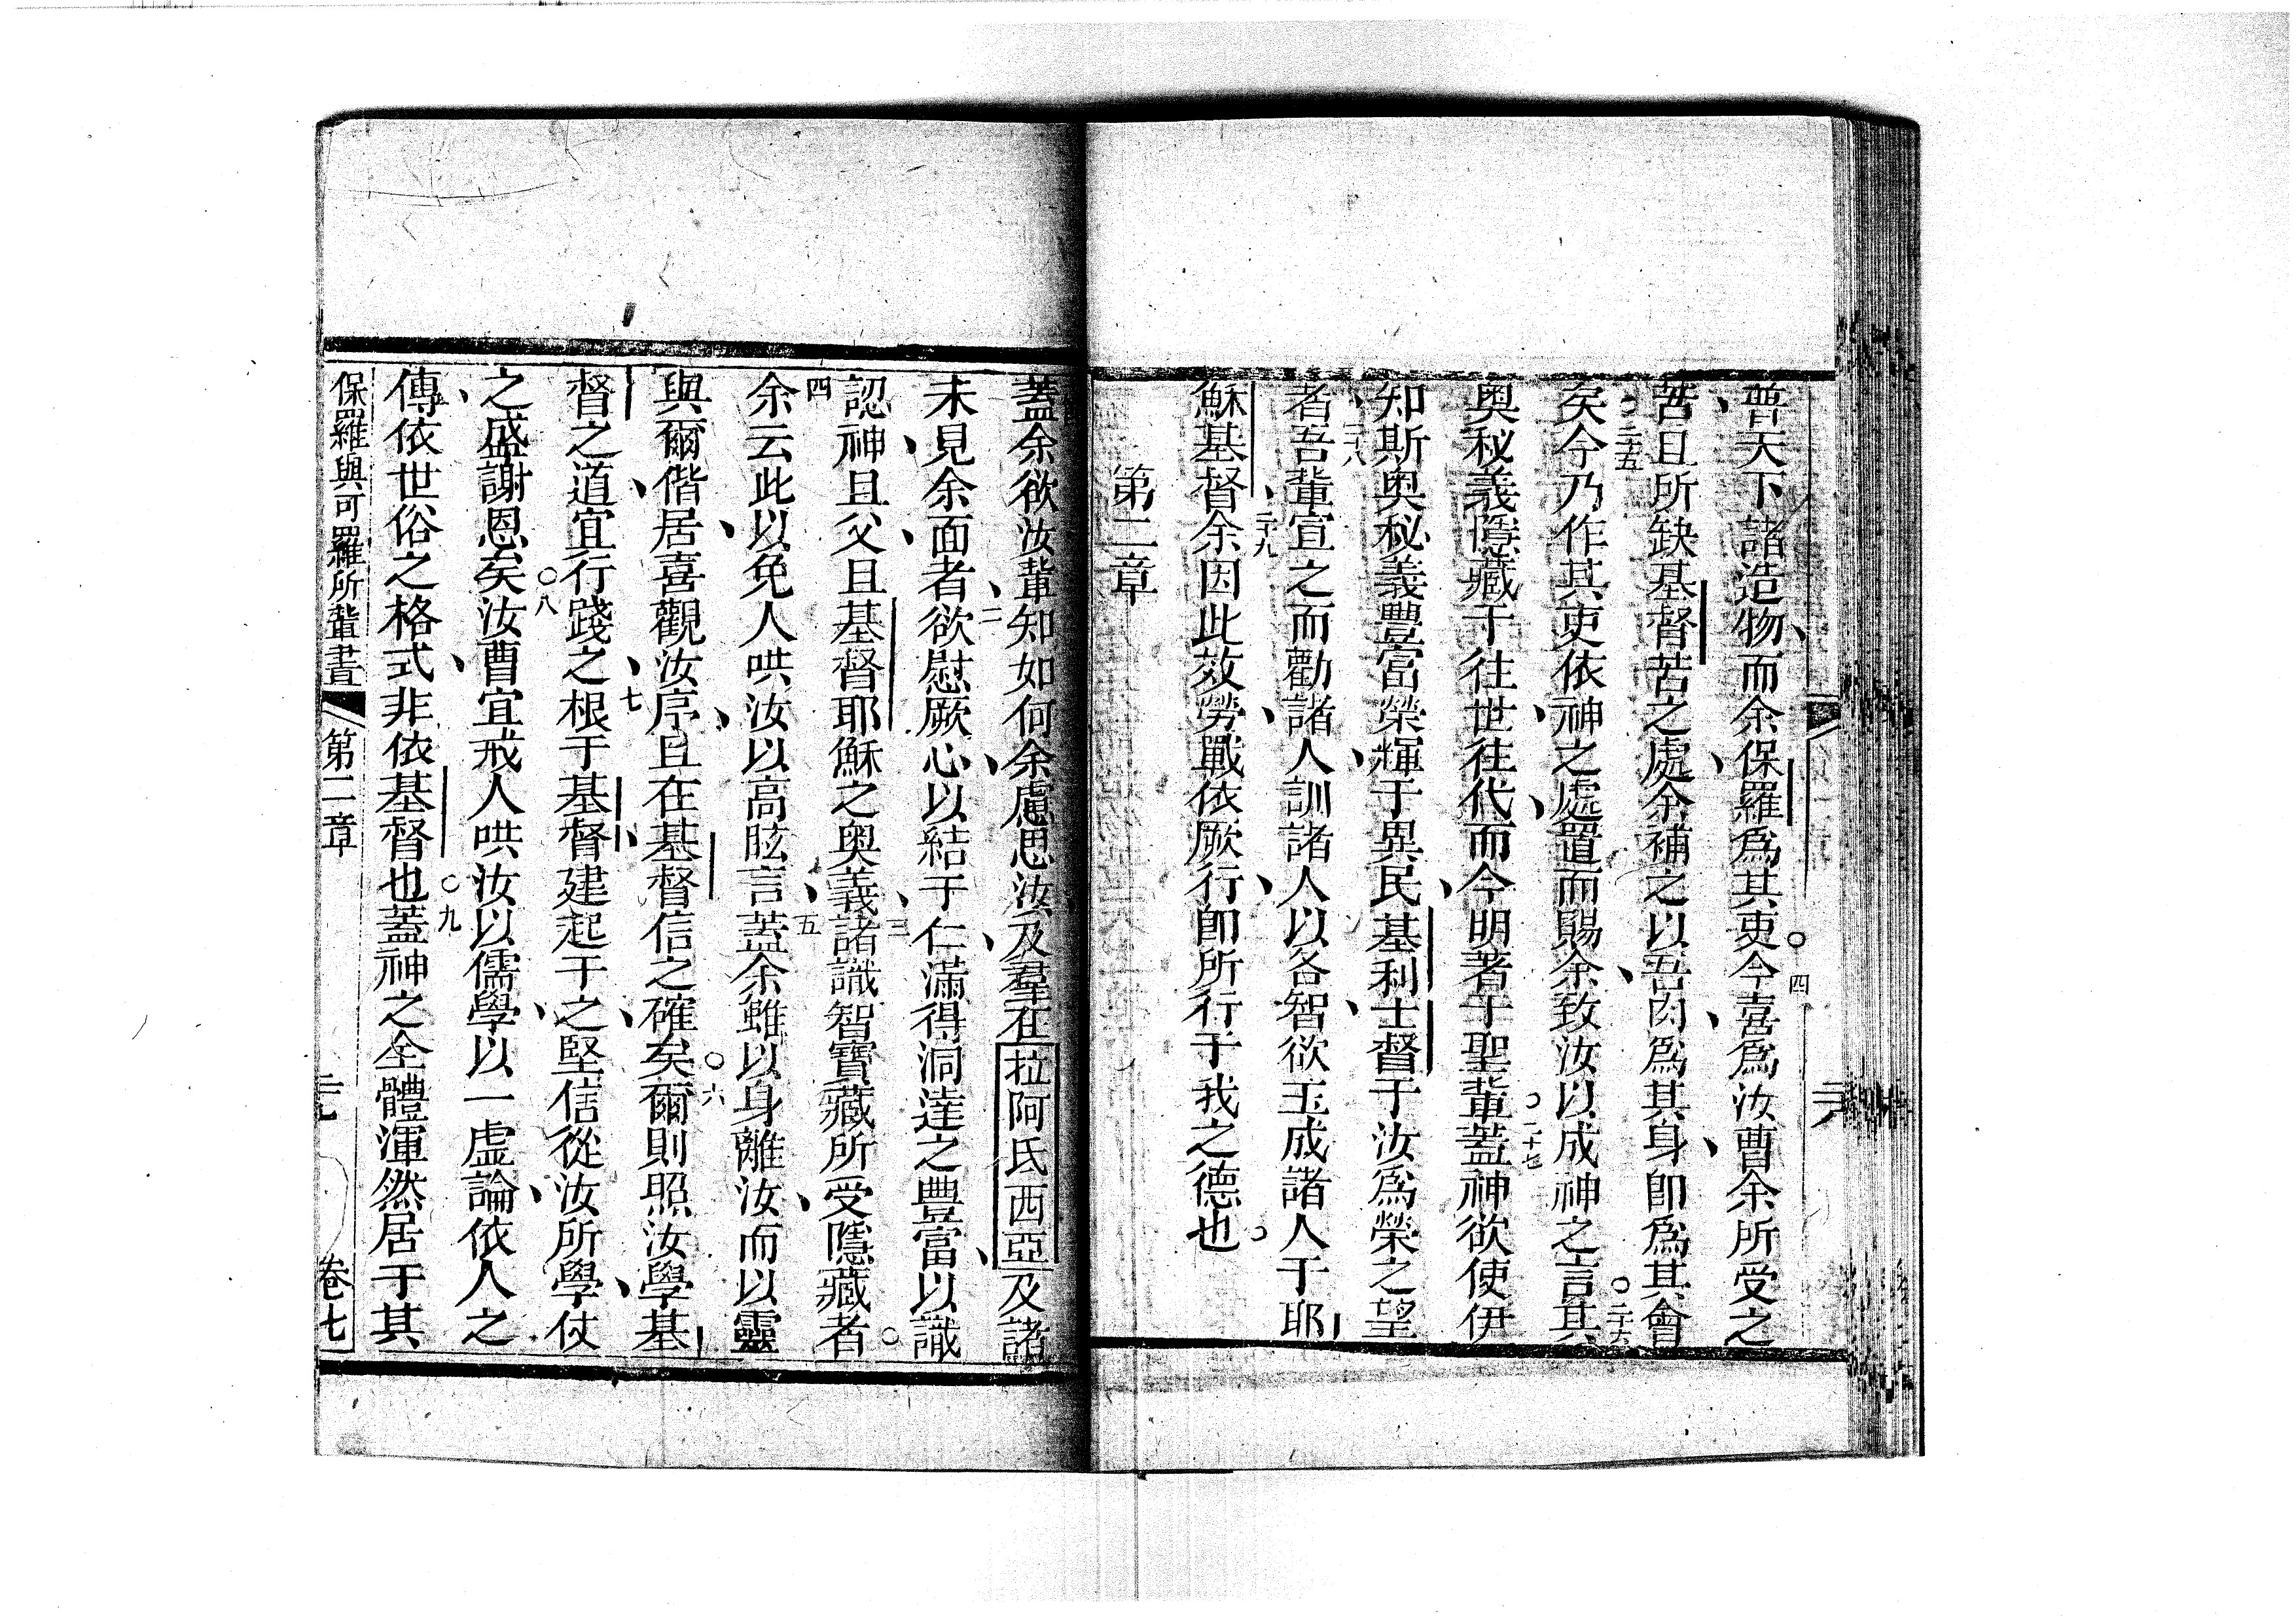 普天下諸造物而余保羅爲其吏今喜爲汝曹余所受之
苦且所缺基督苦之處余補之以吾肉爲其身卽爲其會
矣今乃作其吏依神之處置而賜余致汝以成神之言其
奧秘義隱藏于往世往代而今明著于聖輩蓋神欲使伊
知斯奧秘義豐富榮輝于異民基利士督于汝爲榮之望
者吾輩宣之而勸諸人訓諸人以各智欲玉成諸人于耶
穌基督余因此效勞戰依厥行卽所行于我之德也
第二章
蓋余欲汝輩知如何余慮思汝及羣在拉阿氐西亞及諸
未見余面者欲慰厥心以結于仁滿得洞達之豊富以識
認神且父且基督耶穌之奧義諸識智寶藏所受隱藏者
余云此以免人哄汝以高眩言蓋余雖以身離汝而以靈
與爾偕居喜觀汝序且在基督信之確矣爾則照汝學基
督之道宜行踐之根于基督建起于之堅信從汝所學仗
之盛謝恩矣汝曹宜戒人哄汝以儒學以一虛論依人之
傳依世俗之格式非依基督也蓋神之全體渾然居于其
保羅與可羅所輩書 第二章 二九 卷七